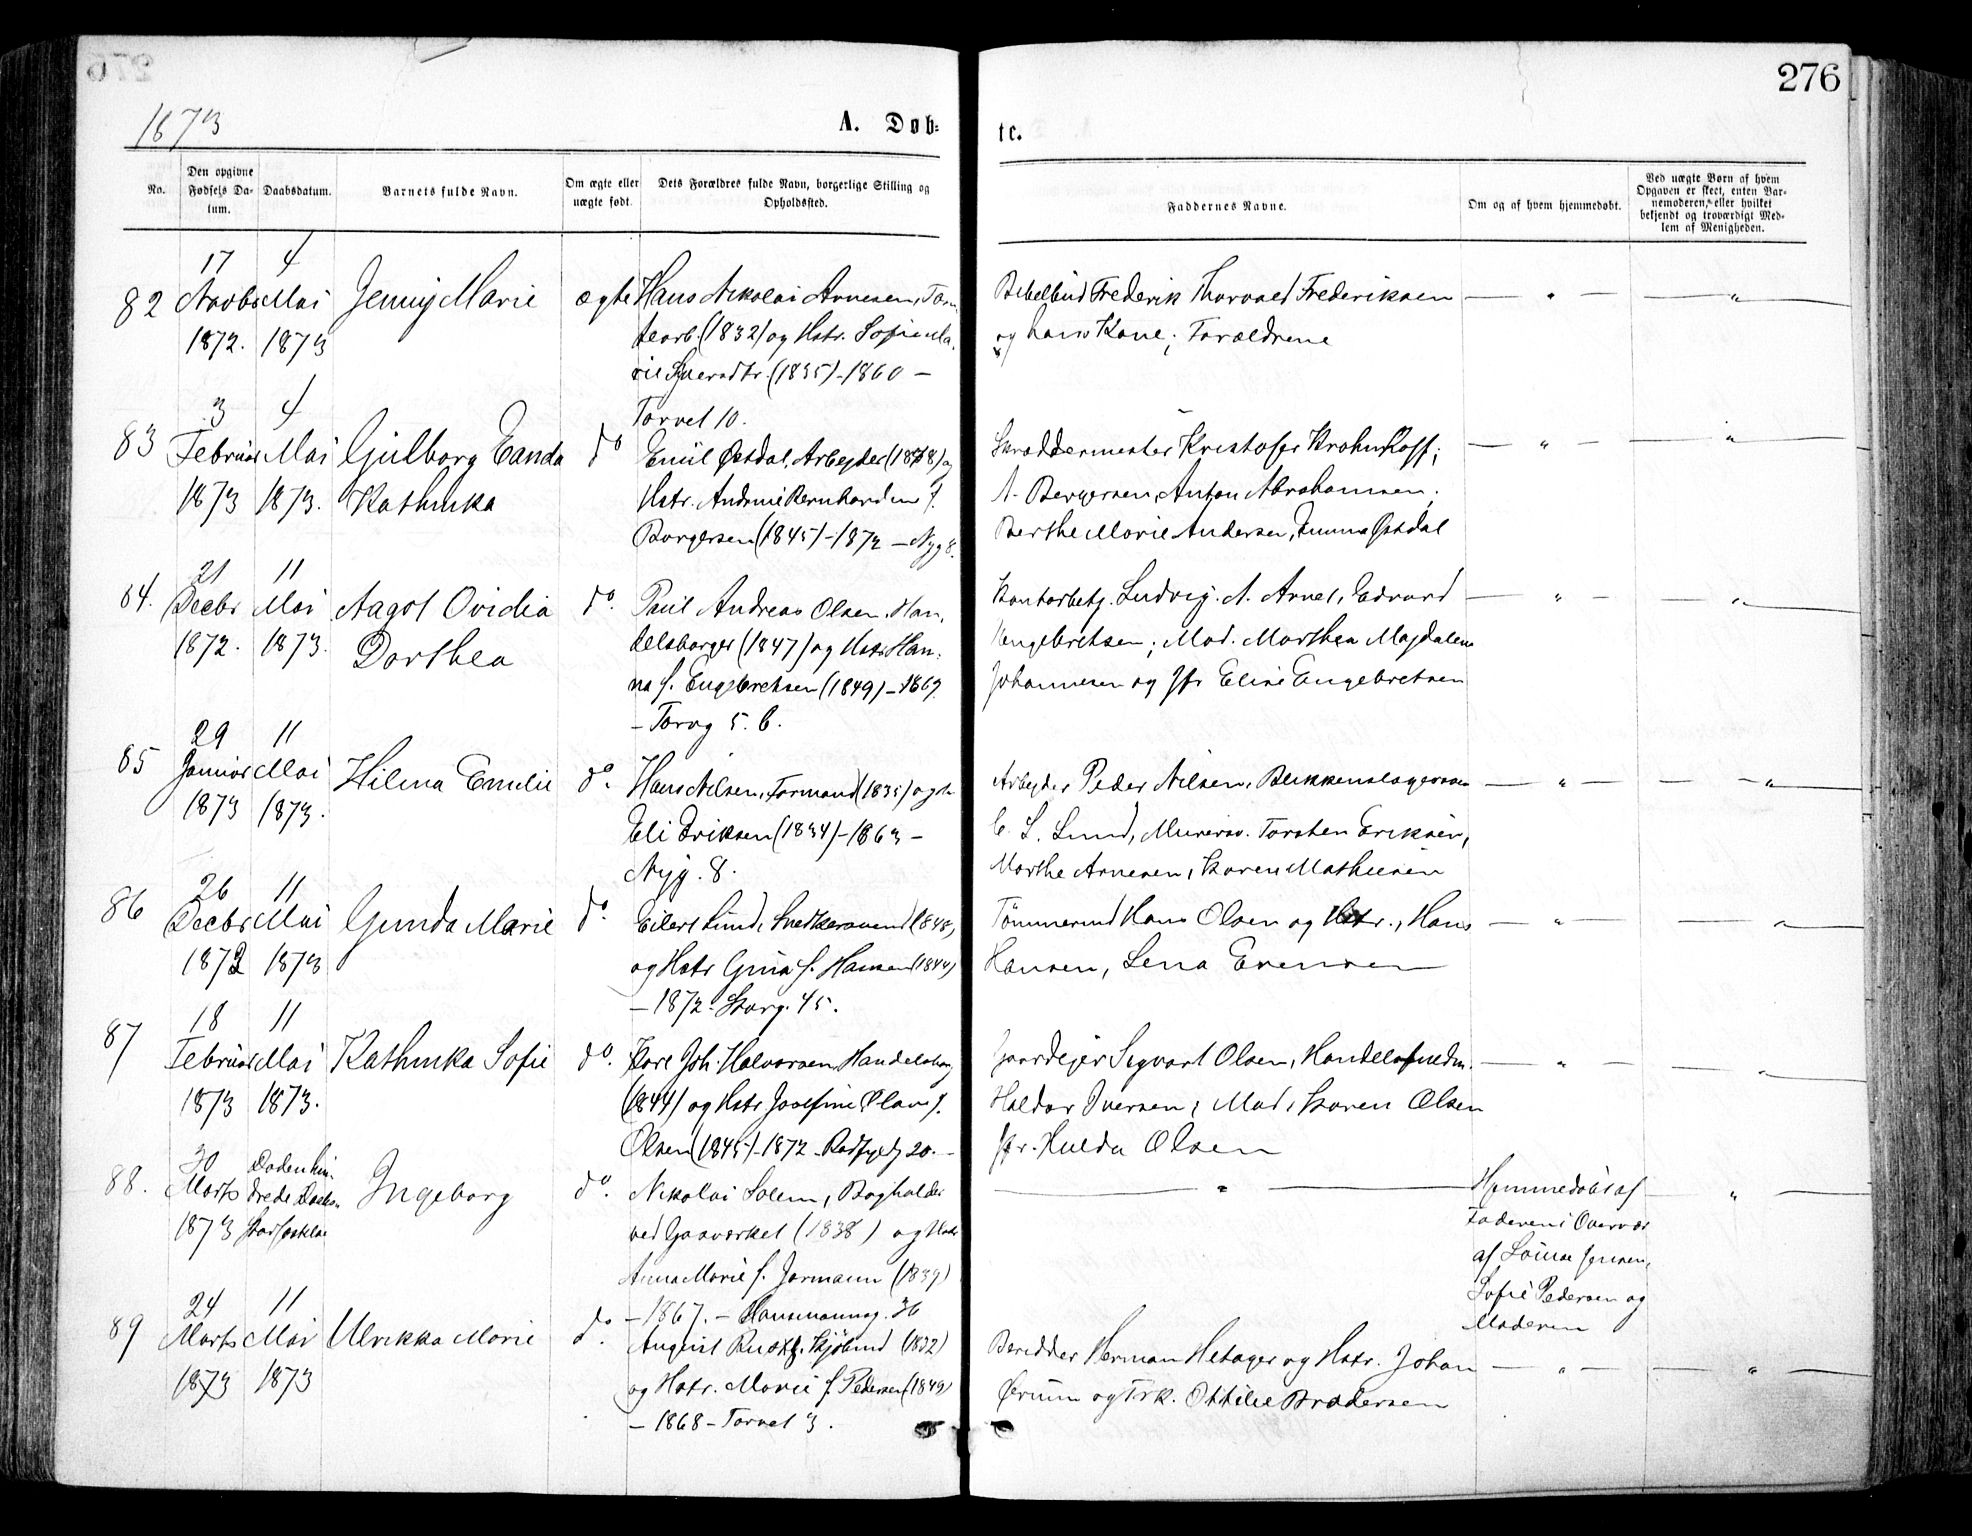 276
1873
A. Døb-
te.
No.
Den opgivne Fødsels Da-
tum.
Daabsdatum.
Barnets fulde Navn.
Om ægte eller
uægte født.
Dets Forældres fulde Navn, borgerlige Stilling og
Opholdssted.
Faddernes Navne.
Om og af hvem hjemmedøbt.
Ved uægte Børn af hvem
Opgaven er skeet, enten Bar-
nemoderen, eller hvilket
bekjendt og troværdigt Med-
lem af Menigheden.
82
17
Novbr
1872.
4
Mai
1873
Jenny Marie
ægte
Hans Nikolai Arnesen,
(1832) og Hstr. Sofie Ma-
rie (1835) - 1860 -
Torvet 10.
Frederik Thorvald Frederiksen
og hans Kone; Forældrene
83
3
Februar
1873
4
Mai
1873.
Gulborg Vanda
Kathinka
do
Emil Østdal, Arbejder (1848) og
Hstr. Andrine Bernhardine f.
Borgersen (1845) - 1872 - Nyg 8.
Skræddermester Kristofer Krohnhoff;
A. Bergersen, Anton Abrahamsen;
Berthe Marie Andersen, Emma Østdal
84.
21
Decbr
1872.
11
Mai
1873.
Aagot Ovidia
Dorthea
do.
Paul Andreas Olsen, Han-
delsborger (1847) og Hstr Han-
na f. Engebretsen (1849) - 1869.
- Torvg 5. b.
Kontorbetj. Ludvig. A. Arnet, Edvard
Engebretsen; Mad. Marthea Magdalene
Johannesen og Jfr Elise Engebretsen
85
29
Januar
1873
11
Mai
1873.
Hilma Emilie
do.
Hans Nilsen, Formand (1835) og
Eli Eriksen (1834) - 1863 -
Nyg. 8.
Arbejder Peder Nilsen, Blikkenslagersven
C. L. Lund, Murersv. Torsten Eriksen,
Marthe Arnesen, Karen Mathiesen
86
26
Decbr
1872
11
Mai
1873
Gunda Marie
do.
Eilert Lund, Snedkersvend (1848)
og Hstr Gina f. Hansen (1844)
- 1872. Storg. 45.
Tömmermd Hans Olsen og Hstr., Hans
Hansen, Lena Evensen
87
18
Februar
1873
11
Mai
1873.
Kathinka Sofie
do.
Karl Joh. Halvorsen, Handelsborg
(1844) og Hstr Josefine Olava f.
Olsen (1845) - 1872 - Rødfyldg 20. -
Gaardejer Sigvart Olsen, Handelsfuldm.
Haldor Iversen, Mad. Karen Olsen
Jfr. Hulda Olsen
88.
30
Marts
1873
Døden hin-
drede Daabs-
Stadfæstelse
Ingeborg
do.
Nikolai Solem, Bogholder
ved Gasværket (1838) og Hstr
Anna Marie f. Jormann (1839)
- 1867. - Hausmannsg. 36
Hjemmedøbt af
Faderen i Overvær
af Lovise Jensen,
Sofie Pedersen og
Moderen
89
24
Marts
1873
11
Mai
1873
Ulrikka Marie
do.
August Kjölnud (1832)
og Hstr. Marie f. Pedersen (1849)
- 1868 - Torvet 3.
Beridder Herman Hetager og Hstr. Johan
Ørum og Frk. Ottilie Brodersen